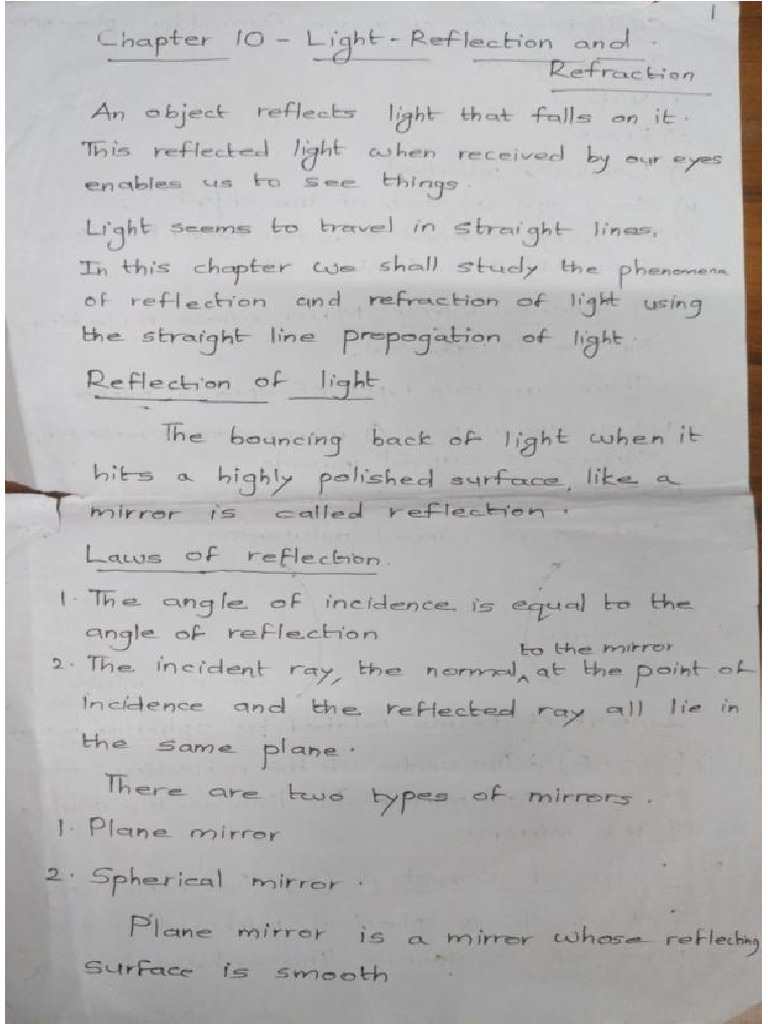 1
Chapter 10 - Light - Reflection and
Refraction
An object reflects light that falls on it.
This reflected light when received by our eyes
enables us to see things.
Light seems to travel in straight lines.
In this chapter we shall study the phenomena
of reflection and refraction of light using
the straight line propogation of light.
Reflection of light
The bouncing back of light when it
hits a highly polished surface, like a
mirror is called reflection.
Laws of reflection.
1. The angle of incidence is equal to the
angle of reflection
to the mirror
2. The incident ray, the normal, ^ at the point of
Incidence and the reflected ray all lie in
the same plane.
There are two types of mirrors.
1. Plane mirror
2. Spherical mirror.
Plane mirror is a mirror whose reflecting
surface is smooth